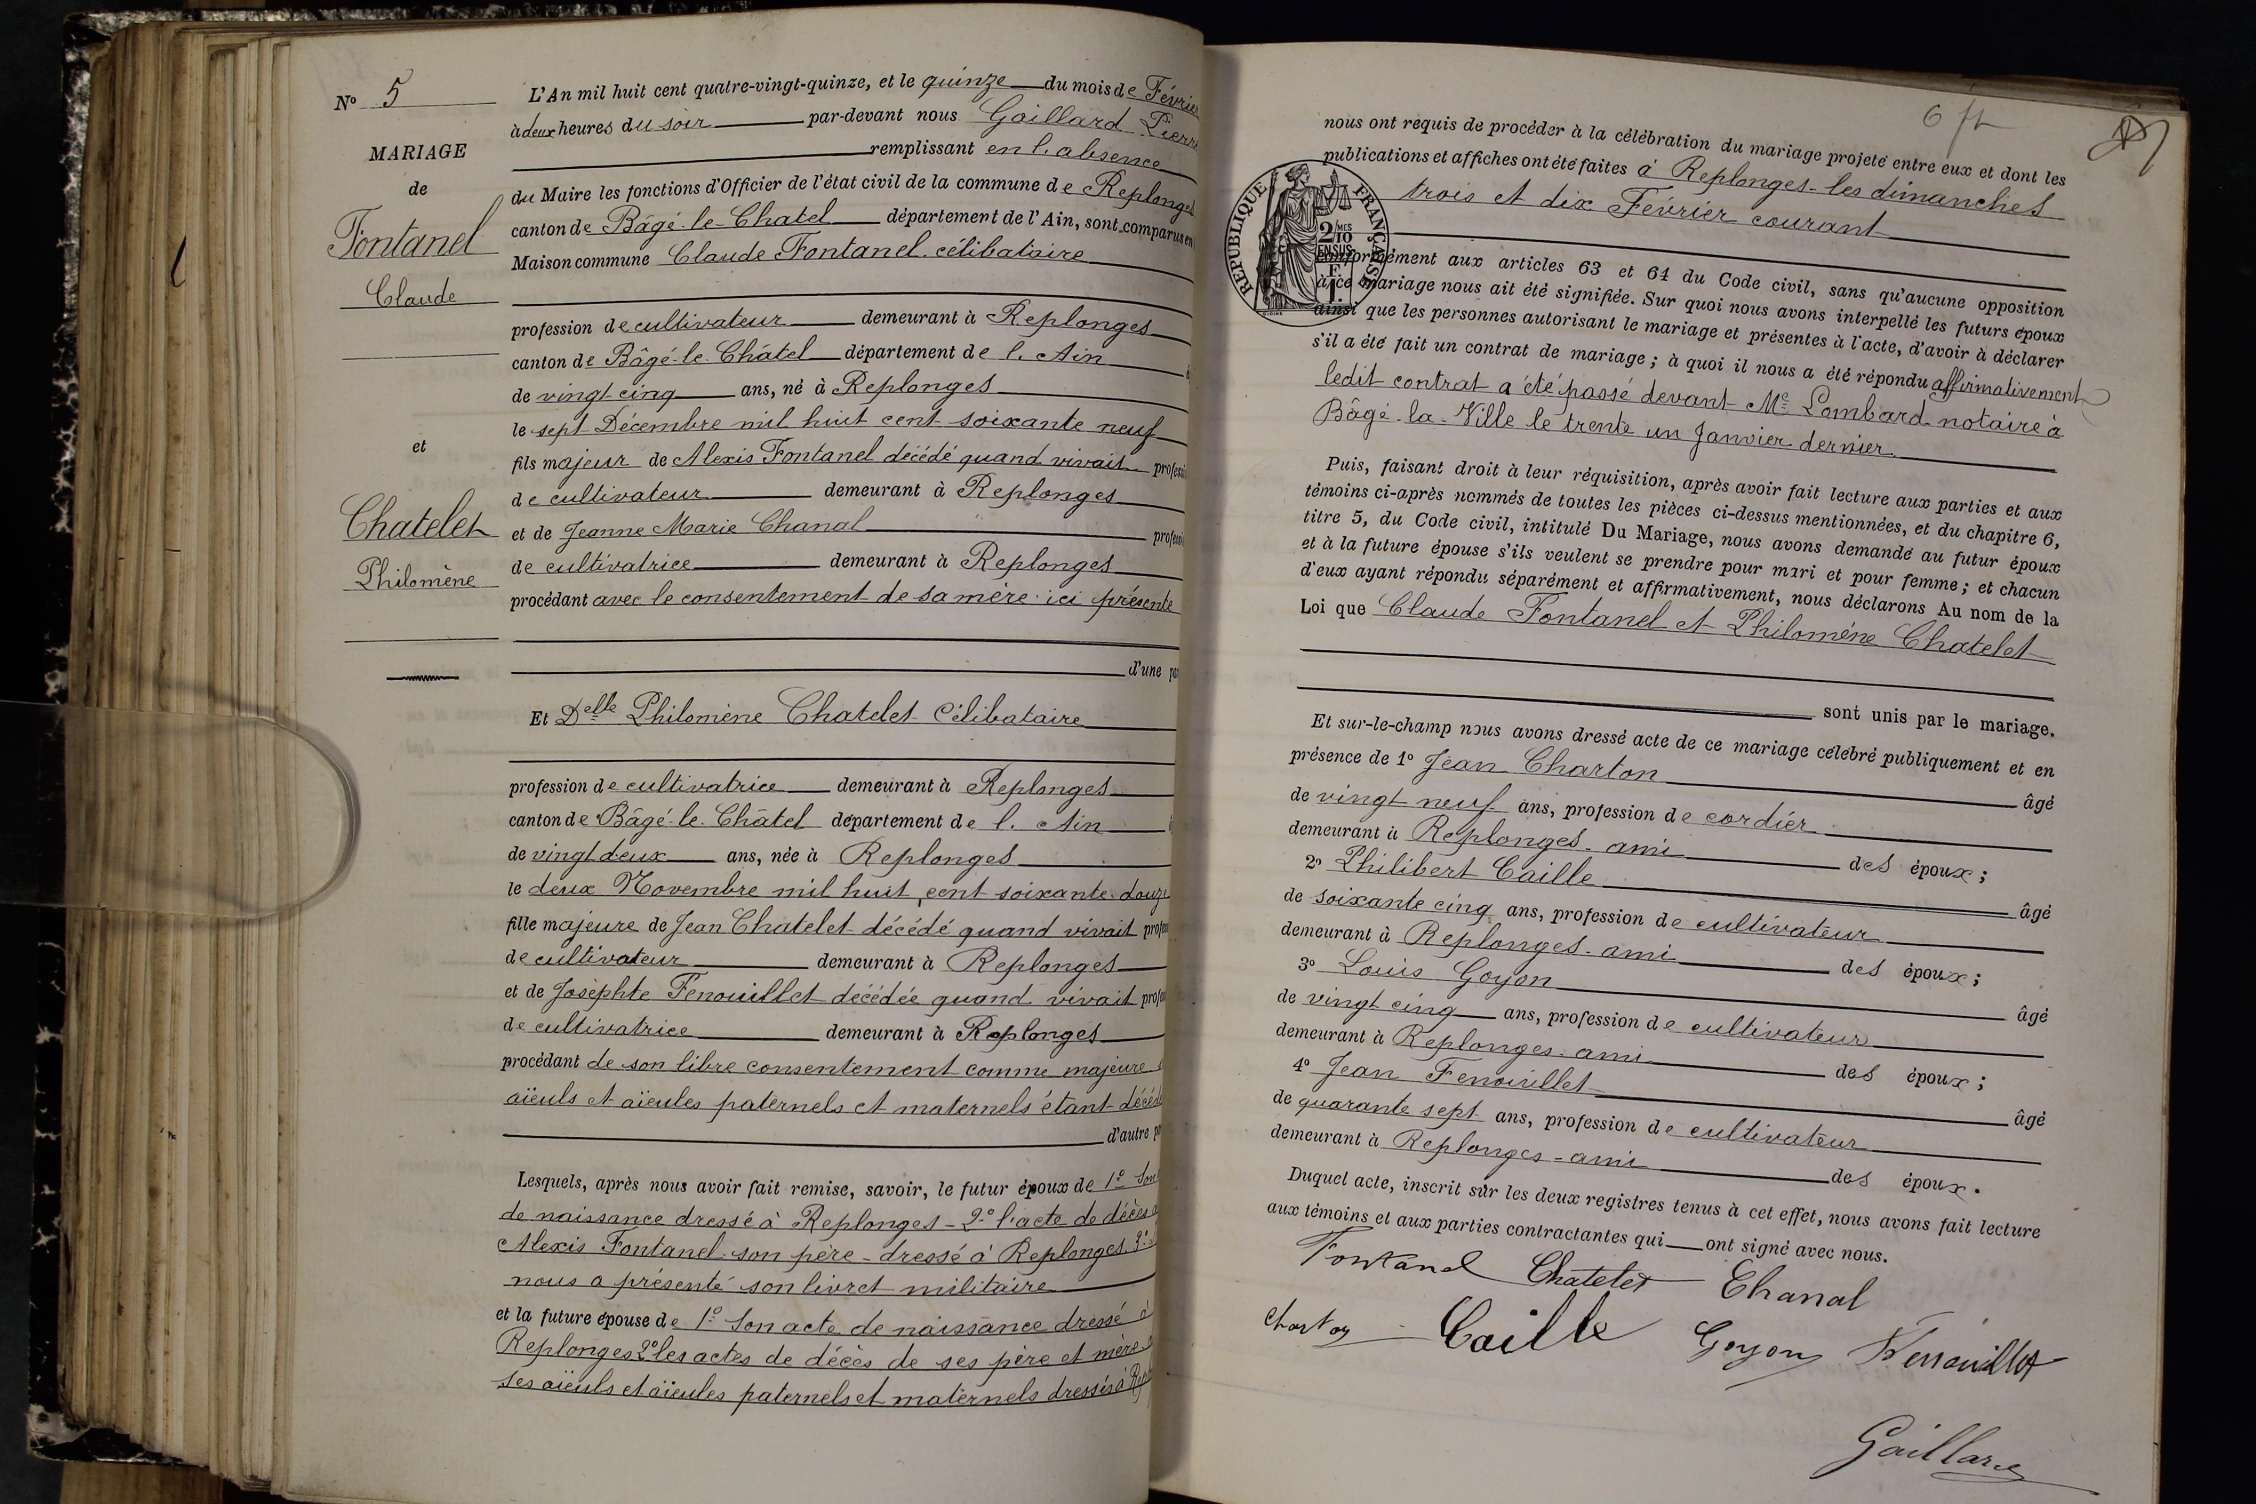 No 5
MARIAGE
de
Fontanel
Claude
et
Chatelet
Philomène
L'An mil huit cent quatre-vingt-quinze, et le quinze du mois de Février
à deux heures du soir par-devant nous Gaillard Pierre
remplissant en l'absence
du Maire les fonctions d'Officier de l'état civil de la commune de Replonges
canton de Bâgé-le-Chatel département de l'Ain, sont comparus en
Maison commune Claude Fontanel célibataire
profession de cultivateur demeurant à Replonges
canton de Bâgé-le-Châtel département de l'Ain
de vingt-cinq ans, né à Replonges
le sept Décembre mil huit cent soixante neuf
fils majeur de Alexis Fontanel décédé quand vivait
de cultivateur demeurant à Replonges
et de Jeanne Marie Chanal
de cultivatrice demeurant à Replonges
procédant avec le consentement de sa mère ici présente
d'une
Et Delle Philomène Chatelet célibataire
profession de cultivatrice demeurant à Replonges
canton de Bâgé-le-Châtel département de l'Ain
de vingt deux ans, née à Replonges
le deux Novembre mil huit cent soixante-douze
fille majeure de Jean Chatelet décédé quand vivait
de cultivateur demeurant à Replonges
et de Josephte Fenouillet décédée quand vivait
de cultivatrice demeurant à Replonges
procédant de son libre consentement comme majeure
aïeuls et aïeules paternels et maternels étant
d'autre
Lesquels, après nous avoir fait remise, savoir, le futur époux de 1º Son
de naissance dressé à Replonges - 2º l'acte de décès
Alexis Fontanel son père - dressé à Replonges. 3º
nous a présenté son livret militaire
et la future épouse de 1º Son acte de naissance dressé à
Replonges 2º les actes de décès de ses père et mère
ses aïeuls et aïeules paternels et maternels dressés à
6 ft
nous ont requis de procéder à la célébration du mariage projeté entre eux et dont les
publications et affiches ont été faites à Replonges - les dimanches
trois et dix Février courant
RÉPUBLIQUE FRANÇAISE
2 MES
10
EN SUS
F.
1.
conformément aux articles 63 et 64 du Code civil, sans qu'aucune opposition
à ce mariage nous ait été signifiée. Sur quoi nous avons interpellé les futurs époux
ainsi que les personnes autorisant le mariage et présentes à l'acte, d'avoir à déclarer
s'il a été fait un contrat de mariage; à quoi il nous a été répondu affirmativement
ledit contrat a été passé devant Me Lombard notaire à
Bâgé-la-Ville le trente un Janvier dernier.
Puis, faisant droit à leur réquisition, après avoir fait lecture aux parties et aux
témoins ci-après nommés de toutes les pièces ci-dessus mentionnées, et du chapitre 6,
titre 5, du Code civil, intitulé Du Mariage, nous avons demandé au futur époux
et à la future épouse s'ils veulent se prendre pour mari et pour femme; et chacun
d'eux ayant répondu séparément et affirmativement, nous déclarons Au nom de la
Loi que Claude Fontanel et Philomène Chatelet
sont unis par le mariage.
Et sur-le-champ nous avons dressé acte de ce mariage célébré publiquement et en
présence de 1º Jean Charton âgé
de vingt neuf ans, profession de cordier
demeurant à Replonges - ami des époux;
2º Philibert Caille âgé
de soixante cinq ans, profession de cultivateur
demeurant à Replonges - ami des époux;
3º Louis Goyon âgé
de vingt cinq ans, profession de cultivateur
demeurant à Replonges - ami des époux;
4º Jean Fenouillet âgé
de quarante sept ans, profession de cultivateur
demeurant à Replonges - ami des époux.
Duquel acte, inscrit sur les deux registres tenus à cet effet, nous avons fait lecture
aux témoins et aux parties contractantes qui ont signé avec nous.
Fontanel Chatelet Chanal
Charton Caille Goyon Fenouillet
Gaillard